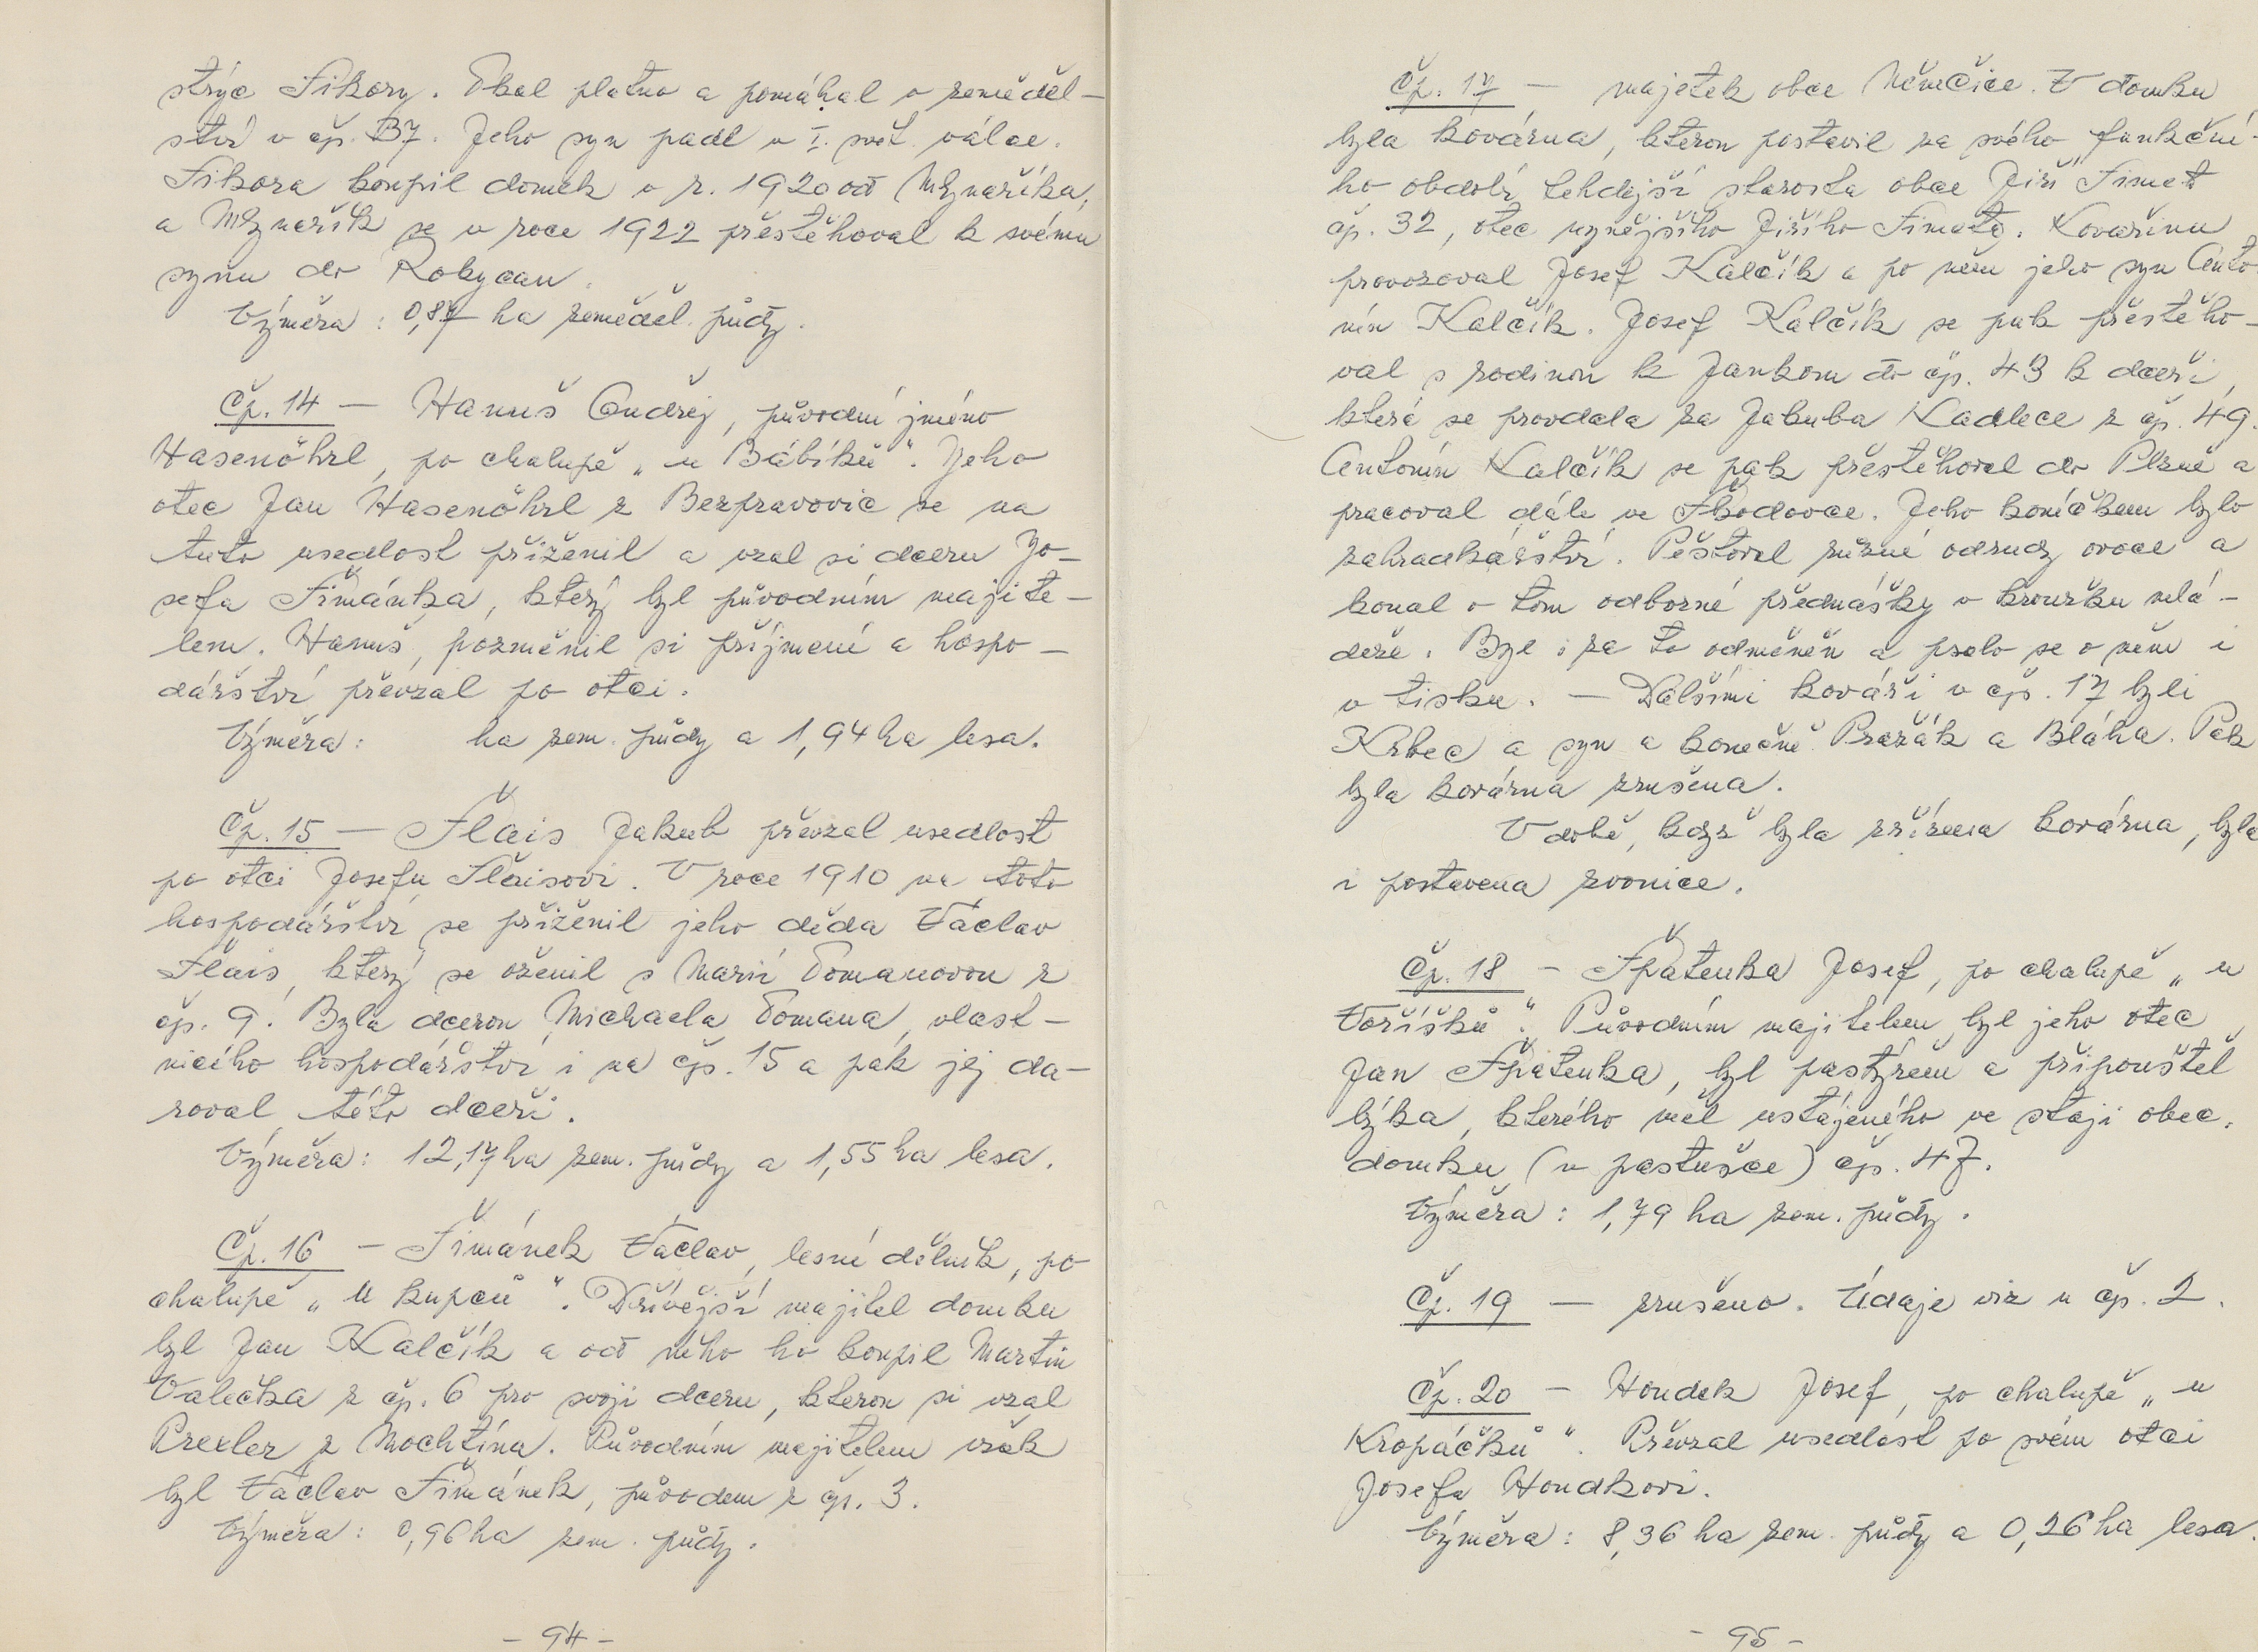 strýc Sikory. Tkal plátno a pomáhal v zeměděl-
ství v čp. 37. Jeho syn padl v I. svět. válce.
Sikora koupil domek v r. 1920 od Mlynaříka,
a Mlynařík se v roce 1922 přestěhoval k svému
synu do Rokycan.
Výměra: 0,87 ha zeměděl. půdy.
Čp. 14 — Hanuš Ondřej, původní jméno
Hasenöhrl, po chalupě „u Bábíků“. Jeho
otec Jan Hasenöhrl z Bezpravovic se na
tuto usedlost přiženil a vzal si dceru Jo-
sefa Šimánka, který byl původním majite-
lem. Hanuš, pozměnil si příjmení a hospo-
dářství převzal po otci.
Výměra: ha zem. půdy a 1,94 ha lesa.
Čp. 15 — Šlais Jakub převzal usedlost
po otci Josefu Šlaisovi. V roce 1910 na toto
hospodářství se přiženil jeho děda Václav
Šlais, který se oženil s Marií Tomanovou z
čp. 9. Byla dcerou Michaela Tomana, vlast-
nícího hospodářství i na čp. 15 a pak jej da-
roval této dceři.
Výměra: 12,17 ha zem. půdy a 1,55 ha lesa.
Čp. 16 — Šimánek Václav, lesní dělník, po
chalupě „U kupců“. Dřívější majitel domku
byl Jan Kalčík a od něho ho koupil Martin
Valečka z čp. 6 pro svoji dceru, kterou si vzal
Prexler z Mochtína. Původním majitelem však
byl Václav Šimánek, původem z čp. 3.
Výměra: 0,96 ha zem. půdy.
- 94 -
Čp. 17 — majetek obce Němčice. V domku
byla kovárna, kterou postavil za svého funkční-
ho období tehdejší starosta obce Jiří Simet
čp. 32, otec nynějšího Jiřího Simeta. Kovařinu
provozoval Josef Kalčík a po něm jeho syn Anto-
nín Kalčík. Josef Kalčík se pak přestěho-
val s rodinou k Jankom do čp. 43 k dceři,
která se provdala za Jakuba Kadlece z čp. 49.
Antonín Kalčík se pak přestěhoval do Plzně a
pracoval dále ve Škodovce. Jeho koníčkem bylo
zahradkářství. Pěstoval různé odrudy ovoce a
konal o tom odborné přednášky v kroužku mlá-
deže. Byl i za to odměněn a psalo se o něm i
v tisku. — Dalšími kováři v čp. 17 byli
Krbec a syn a konečně Pražák a Bláha. Pak
byla kovárna zrušena.
V době, když byla zřízena kovárna, byla
i postavena zvonice.
Čp. 18 — Špatenka Josef, po chalupě „u
Voříšků“. Původním majitelem byl jeho otec
Jan Špatenka, byl pastýřem a připouštěl
býka, kterého měl ustájeného ve stáji obec.
domku (v pastušce) čp. 47.
Výměra: 1,79 ha zem. půdy.
Čp. 19 — zrušeno. Údaje viz u čp. 2.
Čp. 20 — Houdek Josef, po chalupě „u
Kropáčků“. Převzal usedlost po svém otci
Josefu Houdkovi.
Výměra: 8,36 ha zem. půdy a 0,26 ha lesa.
- 95 -